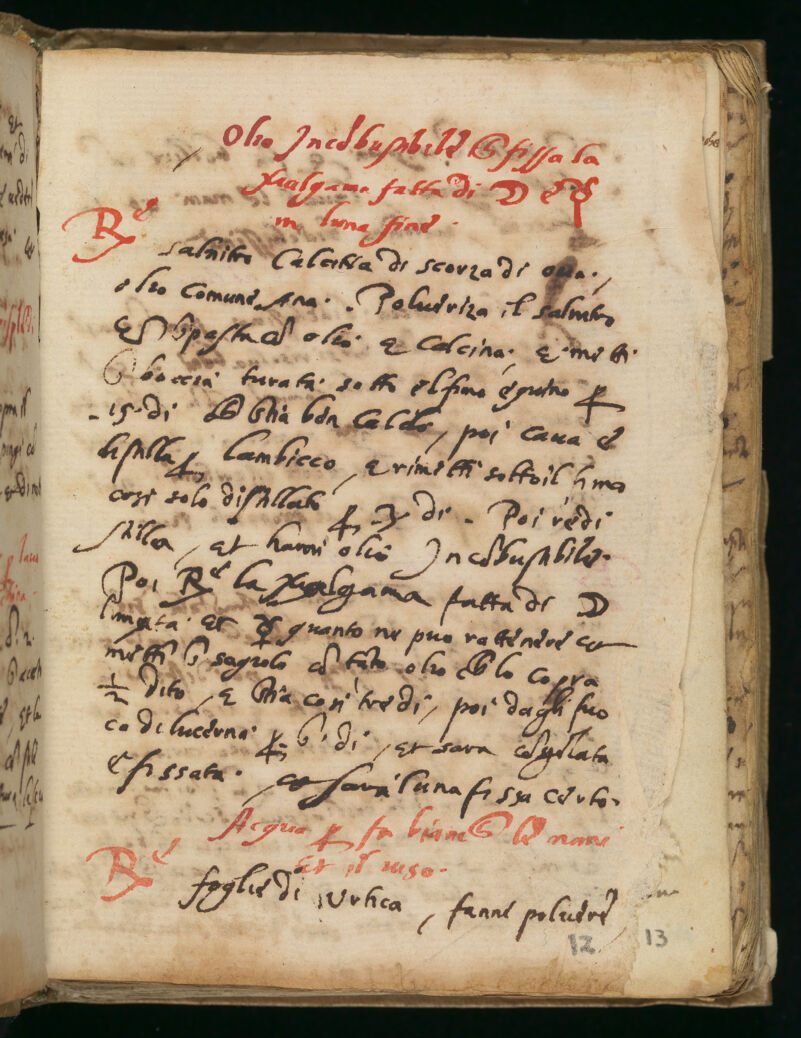 Olio Incōbustibile ch fissa la
Amalgama fatta di ☽ e ☿
in luna fine.
Re
Salnitro Calcina di scorza di oua,
olio Comune Ana. Poluériza il salnitro
et impasta cō olio e Calcina, e metti
in boccia turata sotto el fimo equino p
15 di ch stia bēn Caldo, poi caua e
distilla p lambicco, e rimetti sotto il fimo
cosi solo distillato p 3 di. Poi redi
stilla, et harai olio Incōbustibile.
Poi Re la Amalgama fatta di ☽
limata et ☿ quanto ne puo rattenere et
metti in sagiolo cō tāto olio ch lo copra
½ dito, e stia cosi tre di, poi dagli fuo
co di lucerna p 6 di, et sara cōgelata
e fissata, et sarà luna fissa certo.
Acqua p far bianche le mani
et il uiso.
Re
foglie di Vrtica, fanne poluere
12 13